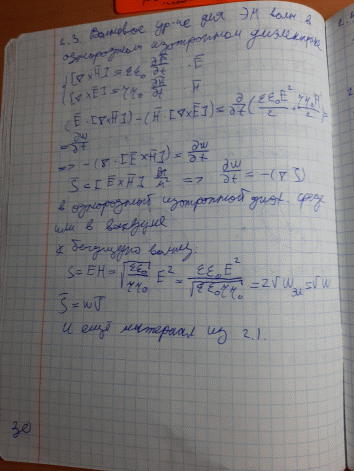 2.3. Волновое ур-ие для ЭМ волн в
однородном изотропном диэлектрике
{[∇×H̄] = εε₀ ∂Ē/∂t · Ē
{[∇×Ē] = μμ₀ ∂H̄/∂t · H̄
(Ē·[∇×H̄]) − (H̄·[∇×Ē]) = ∂/∂t (εε₀Ē²/2 · μμ₀H̄/2) =
= ∂w/∂t
=> −(∇·[Ē×H̄]) = ∂w/∂t
S̄ = [Ē×H̄] => ∂w/∂t = −(∇ S̄)
в однородной изотропной диэл. среде
или в вакууме
бегущую волну:
S = EH = √(εε₀/μμ₀) E² = εε₀E²/√(εε₀μμ₀) = 2v w_эл = v w
S̄ = w v̄
И ещё материал из 2.1.
30